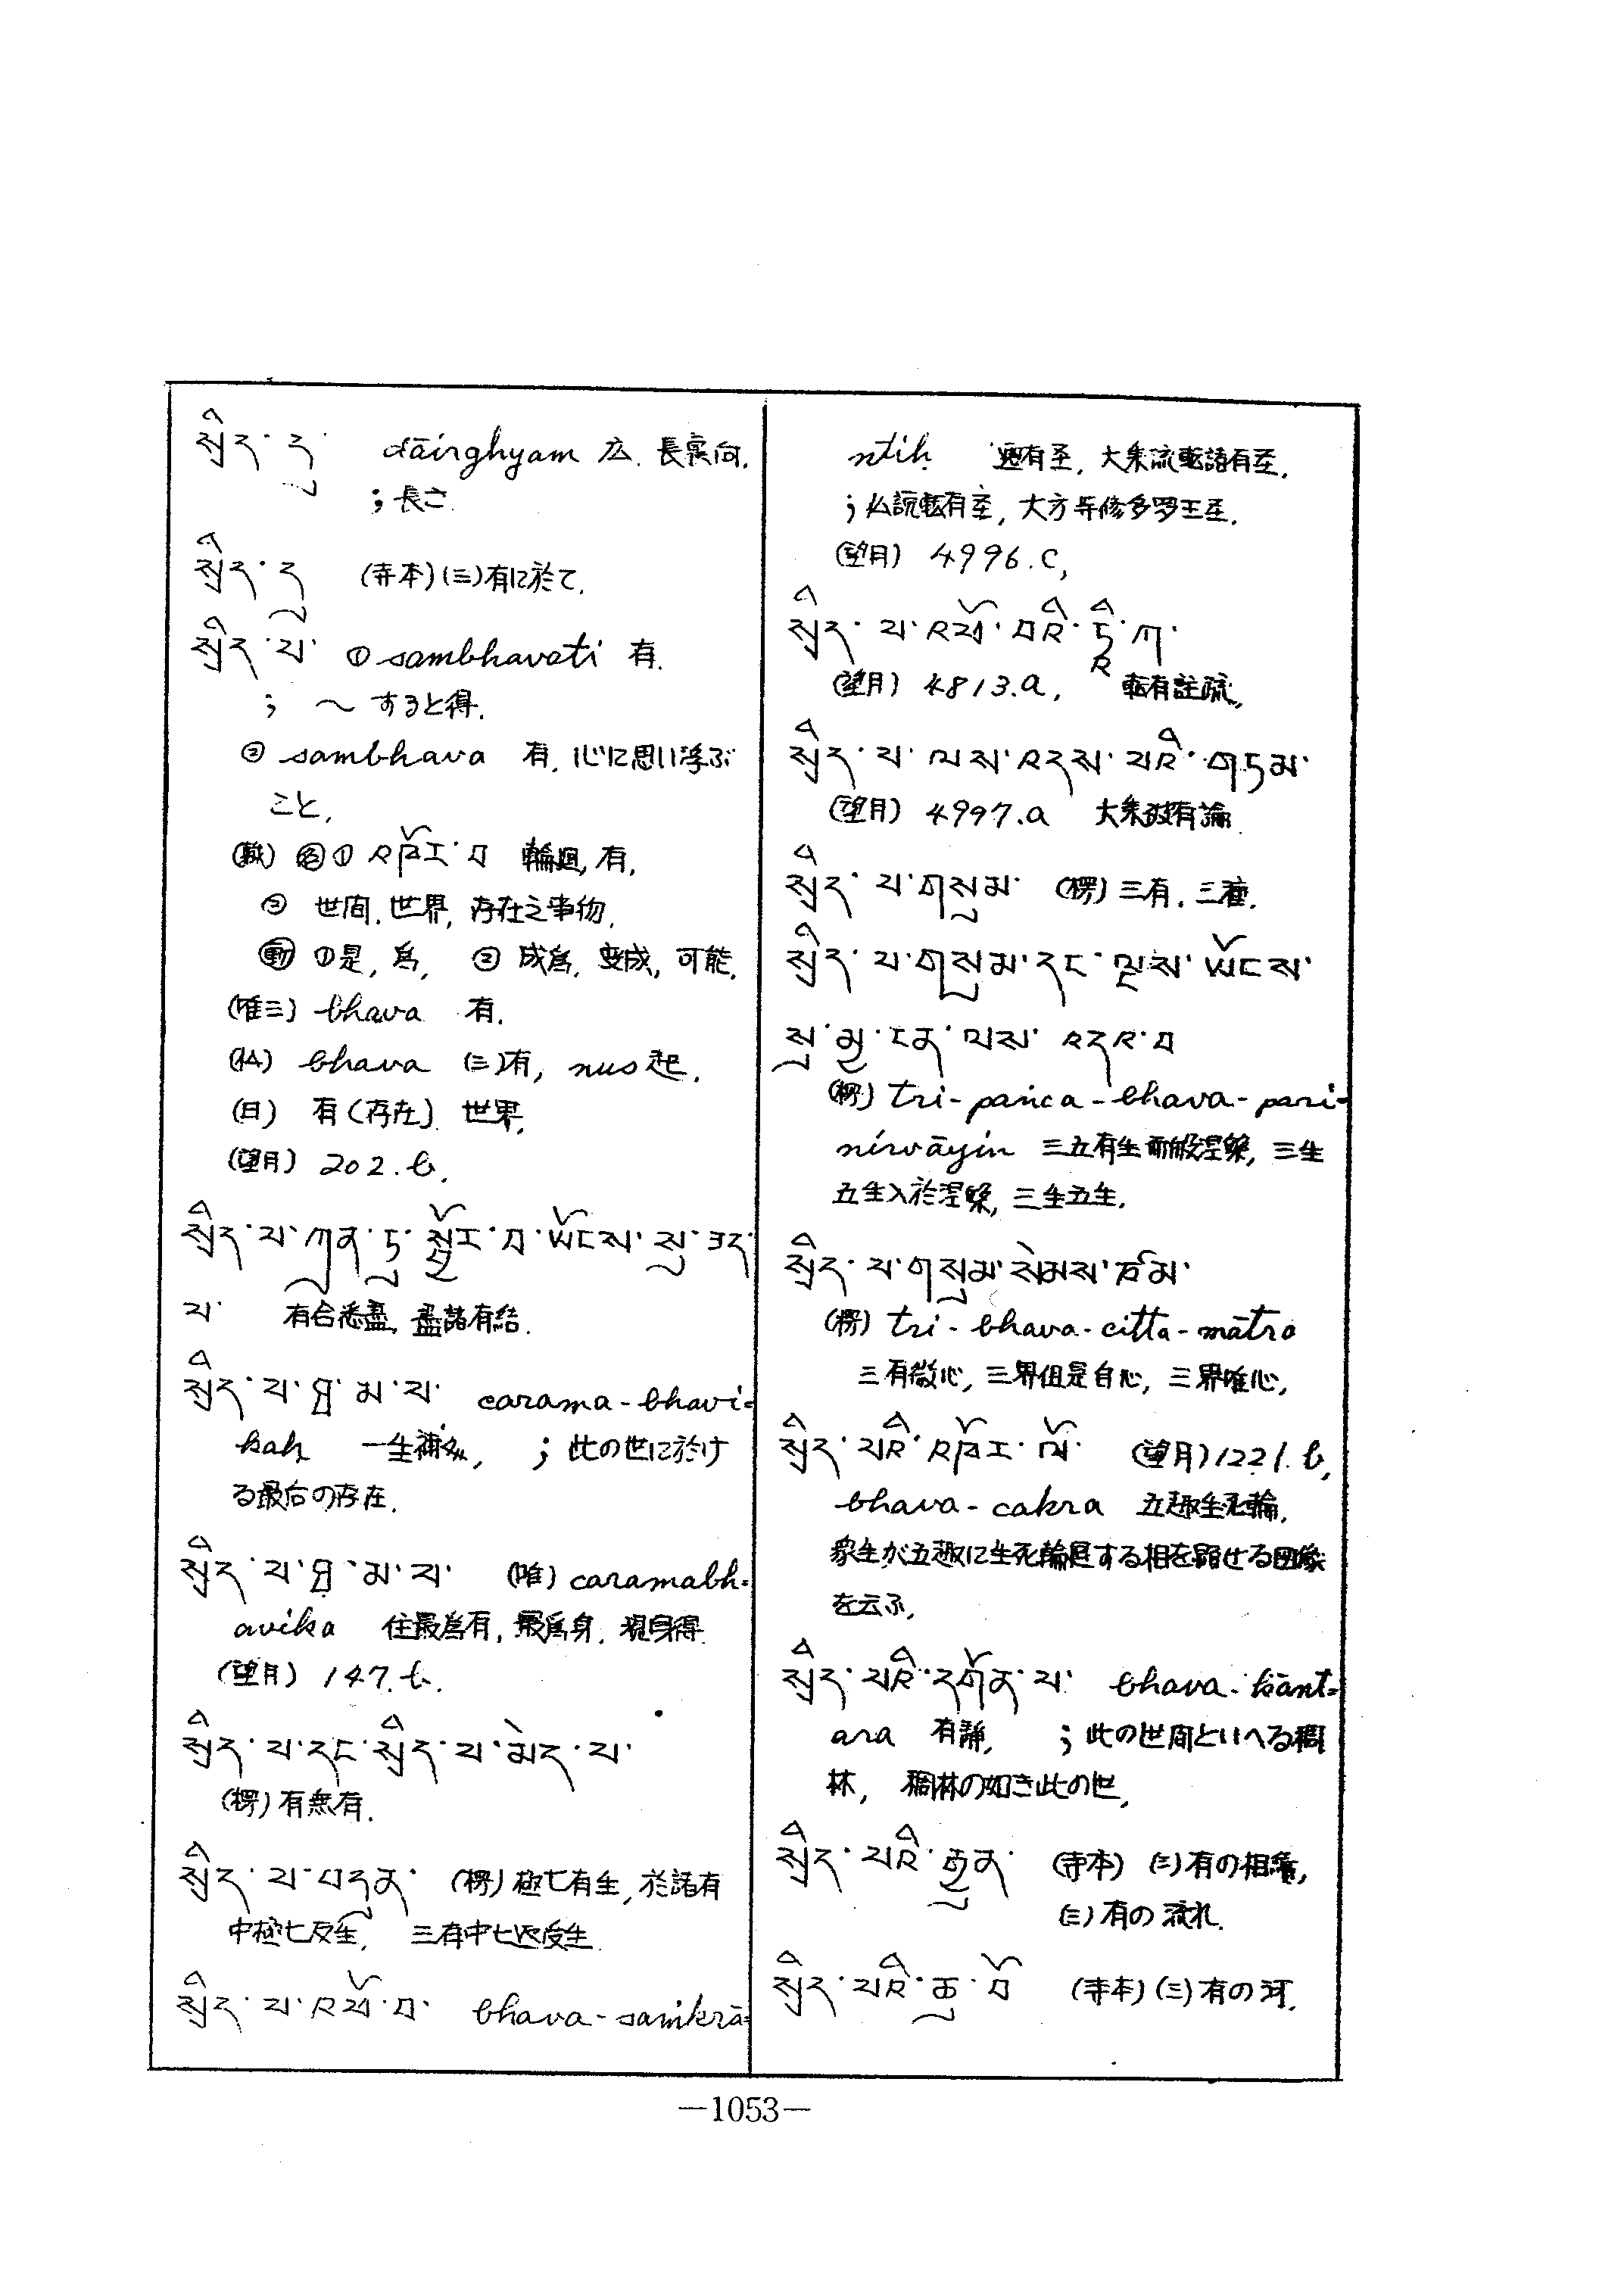 སྲིད་དུ་ dāirghyam 広. 長裏向.
; 長さ.
སྲིད་དུ (寺本)(三)有に於て.
སྲིད་པ་ ① sambhavati 有.
; 〜 すると得.
② sambhava 有, 心に思い浮ぶ
こと,
(蔵) ㊔① འཁོར་བ 輪廻, 有,
② 世間, 世界, 存在之事物,
㊌ ①是, 為, ② 成為, 変成, 可能,
(唯三) bhava 有.
bhava (三)有, nus 起.
(日) 有(存在) 世界,
(望月) 202.b.
སྲིད་པ་ཀུན་ཏུ་སྦྱོར་བ་ཡོངས་སུ་ཟད་
པ་ 有合悉盡, 盡諸有結.
སྲིད་པ་ཐ་མ་པ་ carama-bhavi=
kaḥ 一生補処, ; 此の世に於け
る最后の存在.
སྲིད་པ་ཐ་མ་པ་ (唯) caramabh=
avika 住最為有, 最為身, 現身得
(望月) 147.b.
སྲིད་པ་དང་སྲིད་པ་མེད་པ་
(楞) 有無有.
སྲིད་པ་བདུན་ (楞) 極七有生, 於諸有
中極七反生, 三有中七返反生
སྲིད་པ་འཕོ་བ་ bhava-saṁkrā=
ntiḥ 有至, 大乗流転諸有至.
; 仏説転有至, 大方等修多罗王至.
(望月) 4996.c,
སྲིད་པ་འཕོ་བའི་ཏི་ཀ་
(望月) 4813.a, 転有註疏,
སྲིད་པ་ལས་འདས་པའི་གཏམ་
(望月) 4997.a 大乗破有論
སྲིད་པ་གསུམ་ (楞) 三有, 三種.
སྲིད་པ་གསུམ་དང་ལྔས་ཡོངས་
སུ་མྱ་ངན་ལས་འདའ་བ
(楞) tri-pañca-bhava-pari=
nirvāyin 三五有生而般涅槃, 三生
五生入於涅槃, 三生五生.
སྲིད་པ་གསུམ་སེམས་ཙམ་
(楞) tri-bhava-citta-mātra
三有微心, 三界但是自心, 三界唯心,
སྲིད་པའི་འཁོར་ལོ་ (望月) 1221.b,
bhava-cakra 五趣生死輪,
衆生が五趣に生死輪廻する相を図せる図像
を云ふ,
སྲིད་པའི་དགོན་པ་ bhava-kānt=
ara 有静, ; 此の世間といへる稠
林, 稠林の如き此の世,
སྲིད་པའི་རྒྱུན་ (寺本) (三)有の相続,
(三)有の流れ.
སྲིད་པའི་ཆུ་བོ (寺本)(三)有の河.
—1053—